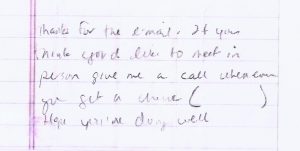 thanks for the e-mail. If you
think you'd like to meet in
person give me a call whenever
you get a chance (          )
Hope you're doing well